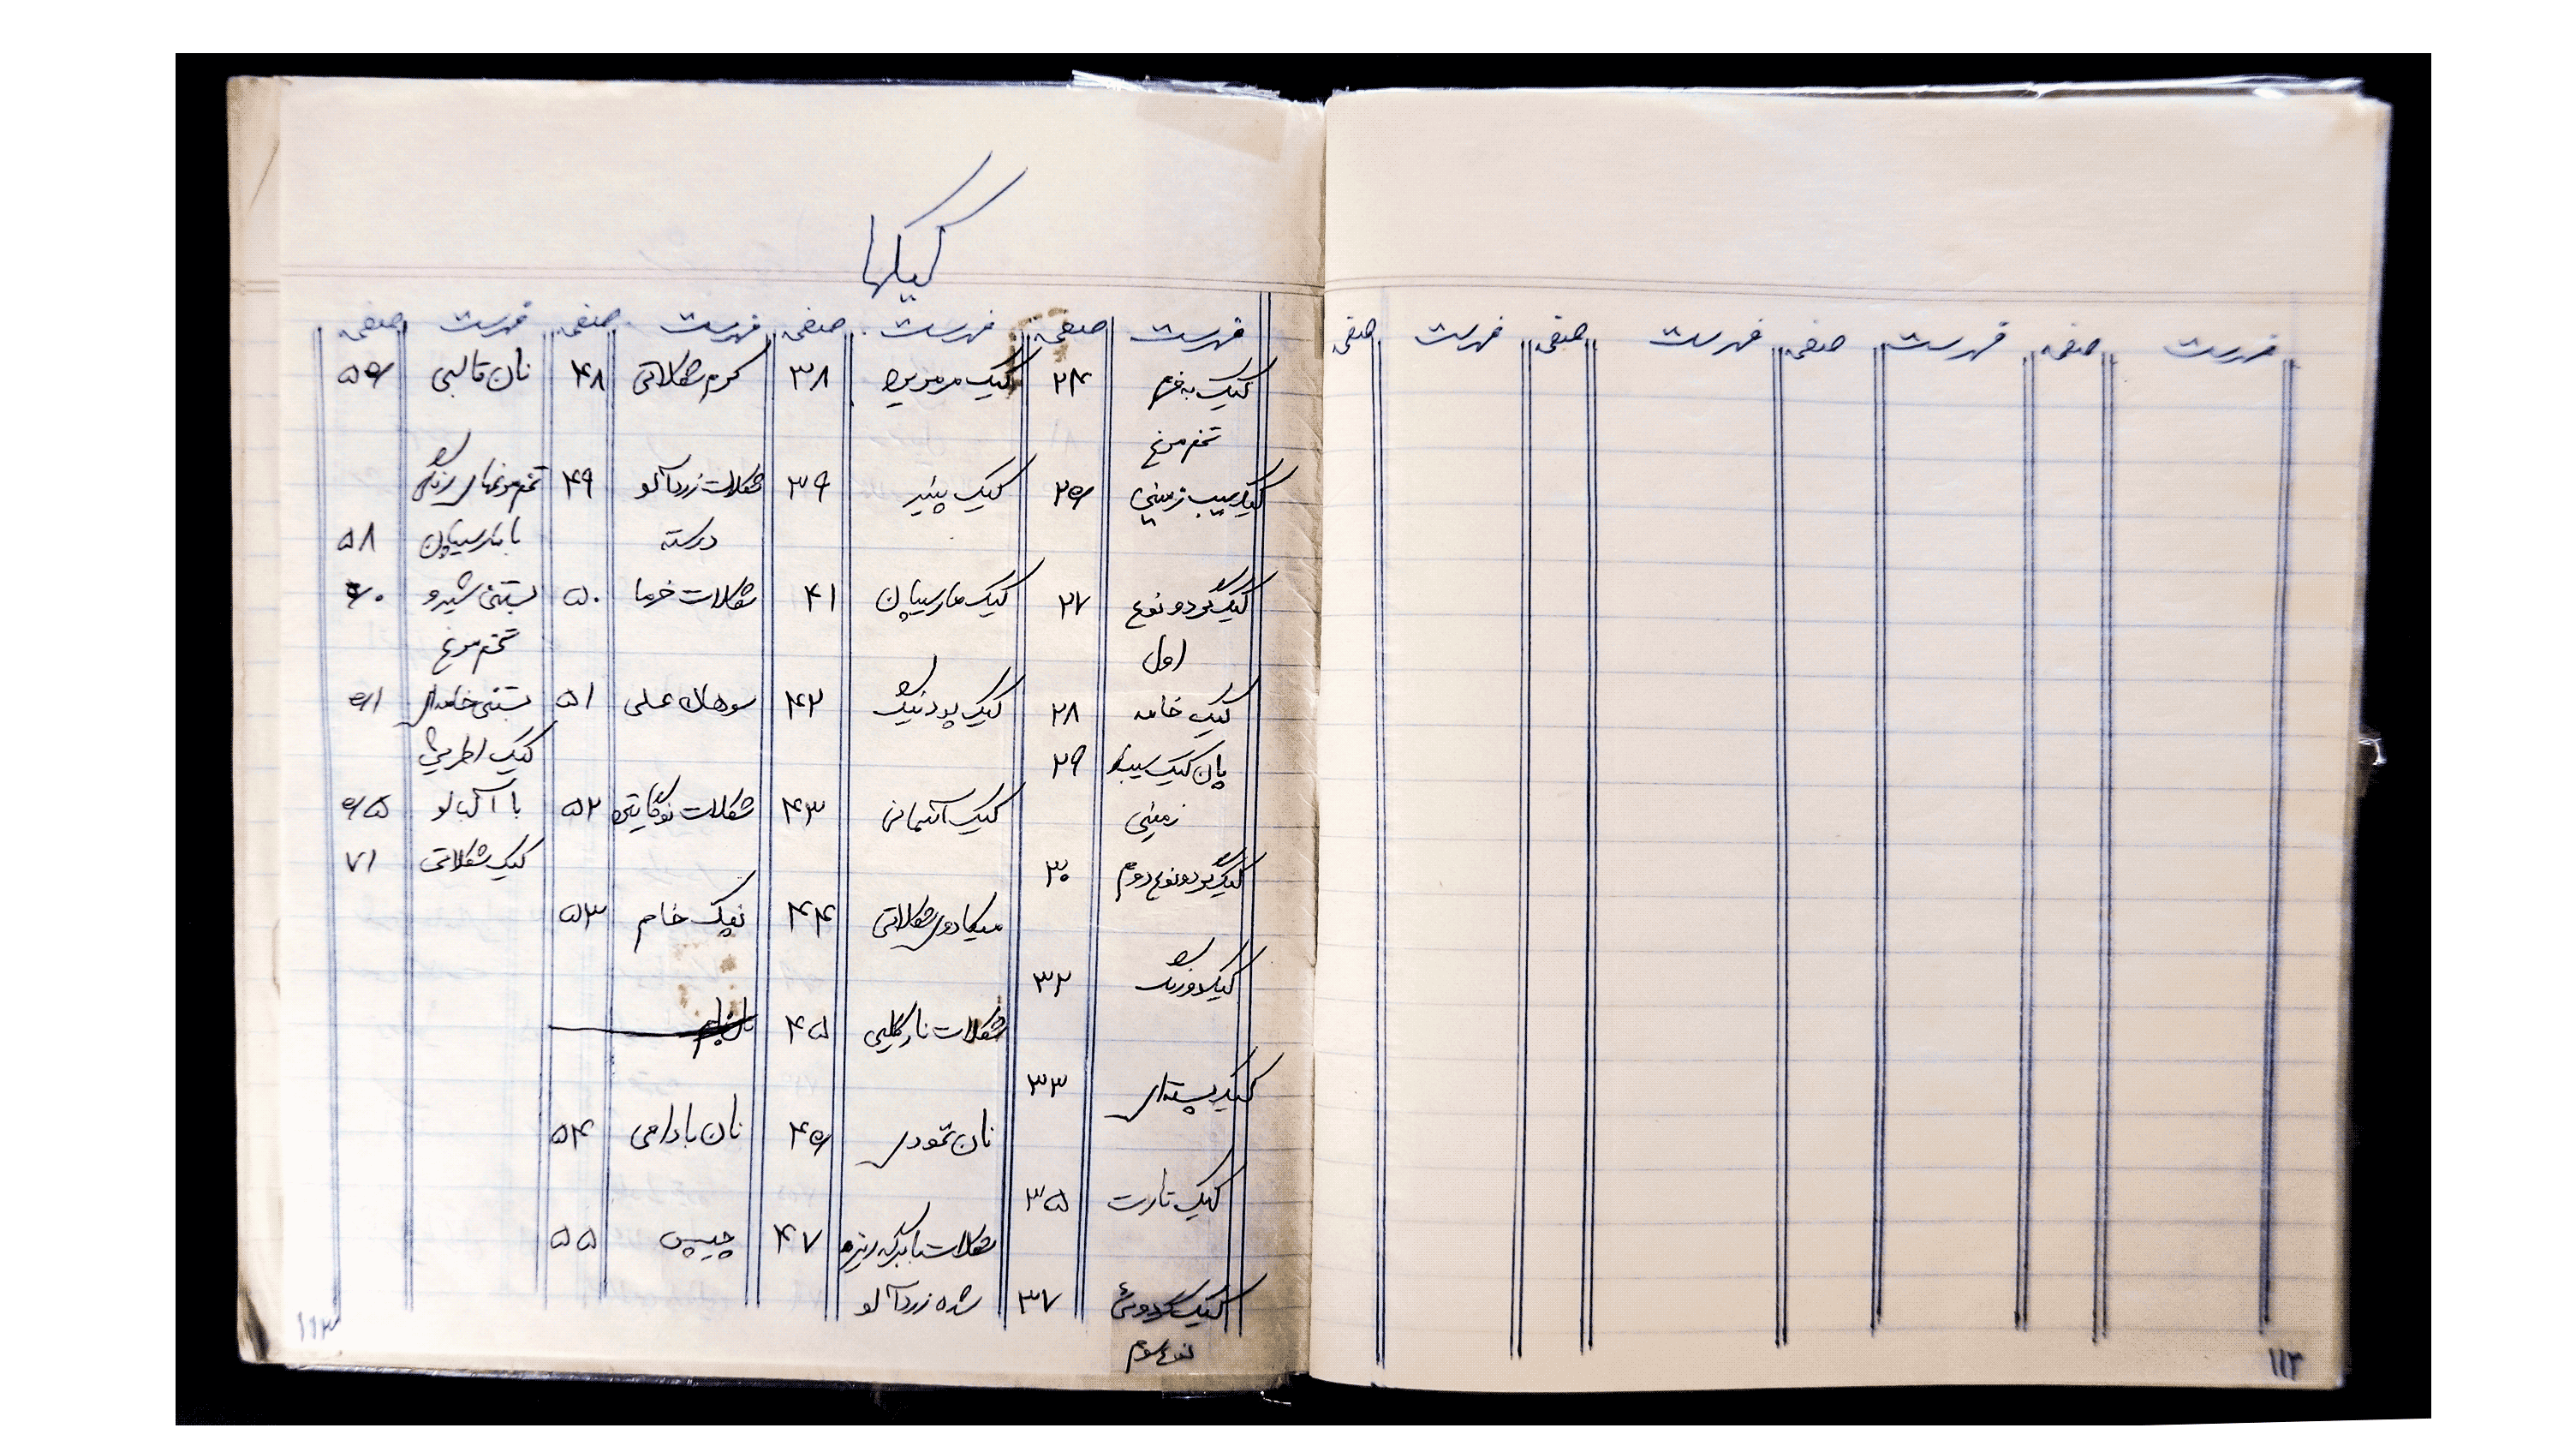 فهرست صفحه فهرست صفحه فهرست صفحه فهرست صفحه
۱۱۲
کیکها
فهرست صفحه فهرست صفحه فهرست صفحه فهرست صفحه
کیک به فرم ۲۴ کیک مرمریه ۳۸ کرم شکلاتی ۴۸ نان قالبی ۵۶
تخم مرغ
کیک سیب زمینی ۲۶ کیک پنیر ۳۹ شکلات زردآلو ۴۹ تخم مرغهای رنگی
درسته با مارسیپان ۵۸
کیک گردو نوع ۲۷ کیک مارسیپان ۴۱ شکلات خرما ۵۰ بستنی شیر و ۶۰
اول تخم مرغ
کیک خامه ۲۸ کیک پودنیگ ۴۲ سوهان عسلی ۵۱ بستنی خامه‌ای ۶۱
پان کیک سیب ۲۹ کیک اطریشی
زمینی کیک آلمانی ۴۳ شکلات نوگایتی ۵۲ با آلبالو ۶۵
کیک گردو نوع دوم ۳۰ کیک شکلاتی ۷۱
میکادوی شکلاتی ۴۴ نپک خام ۵۳
کیک دورنگ ۳۲
شکلات نارگیلی ۴۵
کیک پسته‌ای ۳۳
نان نخودی ۴۶ نان بادامی ۵۴
کیک تارت ۳۵
شکلات با برگه ریزه ۴۷ چیپس ۵۵
کیک گردوئی ۳۷ شده زردآلو
نوع سوم
۱۱۳